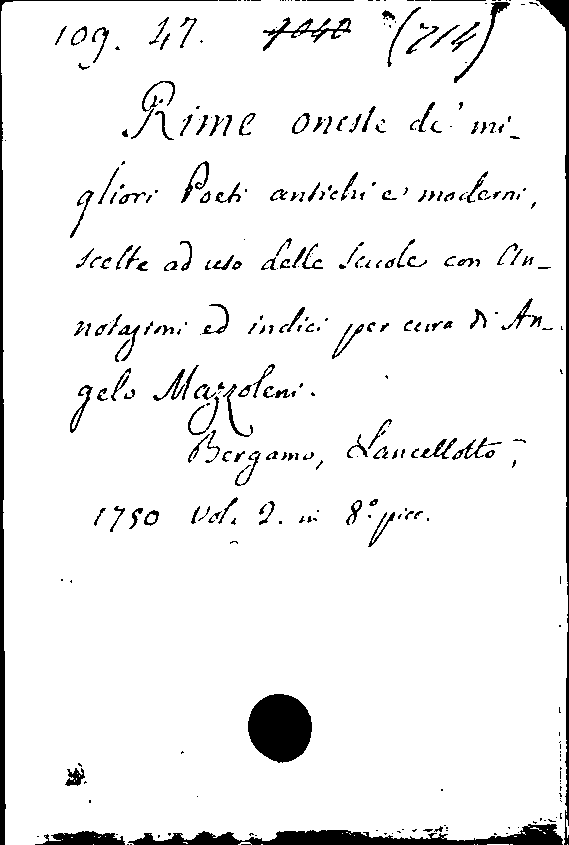 109. 47. 1040 (714)
Rime oneste de' mi-
gliori Poeti antichi e moderni,
scelte ad uso delle scuole con An-
notazioni ed indici per cura di An-
gelo Mazzoleni.
Bergamo, Lancellotto,
1750 Vol. 2. in 8.° picc.